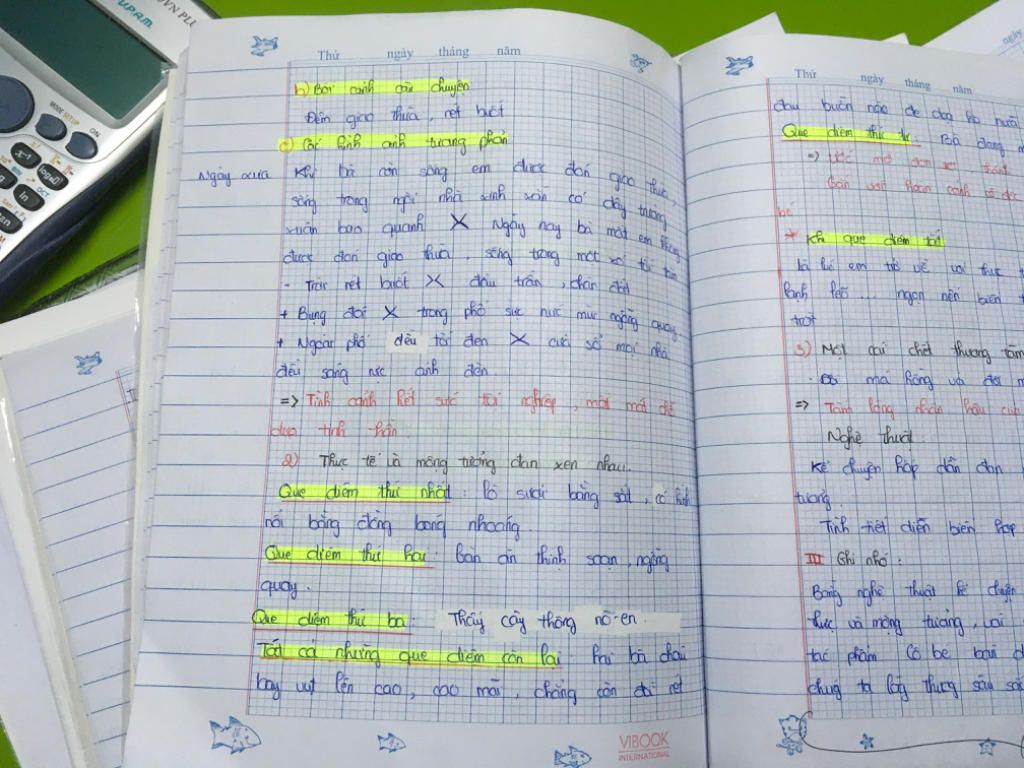 Thứ ngày tháng năm
b) Bối cảnh câu chuyện
Đêm giao thừa, rét buốt
c) Các hình ảnh tương phản
Ngày xưa Khi bà còn sống em được đón giao thừa,
sống trong ngôi nhà xinh xắn có dây thường
xuân bao quanh X Ngày nay bà mất em không
được đón giao thừa, sống trong một xó tối tăm
- Trời rét buốt X đầu trần, chân đất
+ Bụng đói X trong phố sực nức mùi ngỗng quay
+ Ngoài phố đều tối đen X cửa sổ mọi nhà
đều sáng rực ánh đèn.
=> Tình cảnh hết sức tội nghiệp, mất mát
tình thần.
2) Thực tế và mộng tưởng đan xen nhau.
Que diêm thứ nhất: lò sưởi bằng sắt, có hình
nổi bằng đồng bóng nhoáng.
Que diêm thứ hai: Bàn ăn thịnh soạn, ngỗng
quay.
Que diêm thứ ba: Thấy cây thông nô-en.
Tất cả những que diêm còn lại: hai bà cháu
bay vụt lên cao, cao mãi, chẳng còn đói rét
VIBOOK
INTERNATIONAL
Thứ ngày tháng năm
đau buồn nào đe dọa họ nữa
Que diêm thứ tư: Bà đang
=>
hoàn cảnh
bé
* Khi que diêm tắt
là lúc em trở về với thực
lạnh lẽo... ngọn nến biến
trời
3) Một cái chết thương tâm
- Đôi má hồng và đôi
=> Tấm lòng nhân hậu của
Nghệ thuật.
Kể chuyện hấp dẫn đan
tưởng.
Tình tiết diễn biến hợp
III Ghi nhớ:
Bằng nghệ thuật kể chuyện
thực và mộng tưởng, với
tác phẩm Cô bé bán
chúng ta lòng thương sâu sắc
ngày
MODE SETUP
ON